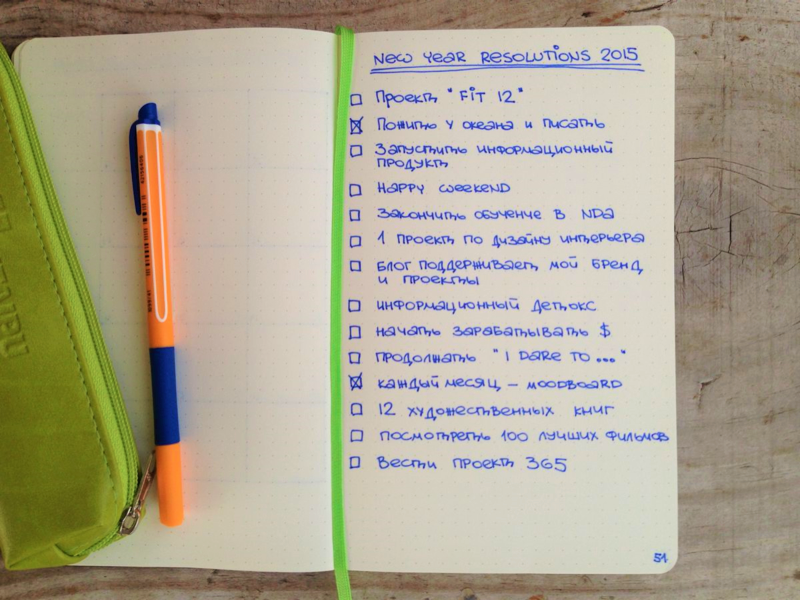 New Year Resolutions 2015
Проект "Fit 12"
Пожить у океана и писать
Запустить информационный
продукт
Happy weekend
Закончить обучение в NDA
1 проект по дизайну интерьера
Блог поддерживает мой бренд
и проекты
Информационный детокс
Начать зарабатывать $
Продолжать "I dare to..."
Каждый месяц – moodboard
12 художественных книг
Посмотреть 100 лучших фильмов
Вести проект 365
51